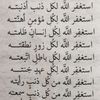 أستغفر الله لكل ذنب أذنبته
أستغفر الله لكل مؤمن أهنته
أستغفر الله لكل إنسان ظلمته
أستغفر الله لكل زور نطقته
أستغفر الله لكل باطل اتبعته
أستغفر الله لكل عهد خنته
أستغفر الله من كل ذنب رأيته
أستغفر الله من كل ذنب سمعته